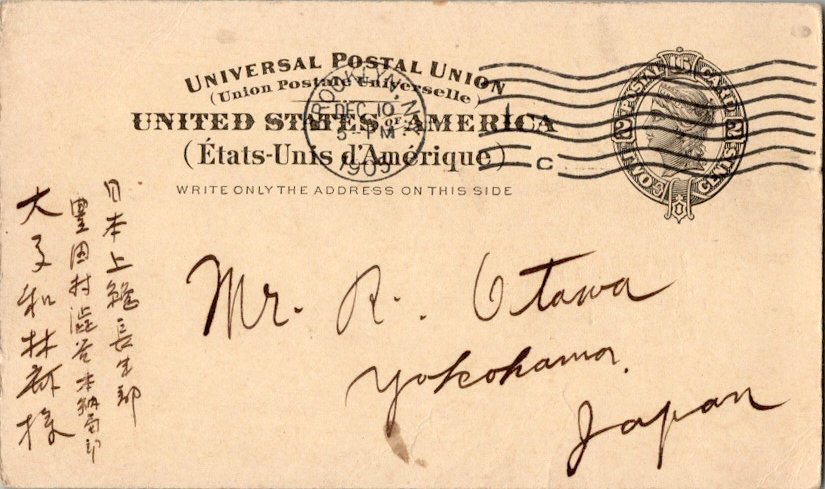 UNIVERSAL POSTAL UNION
(Union Postale Universelle)
UNITED STATES OF AMERICA
(États-Unis d'Amérique)
WRITE ONLY THE ADDRESS ON THIS SIDE
BROOKLYN, N.Y.
DEC 10
5-PM
1905
C
POSTAL CARD
2 2
TWO CENTS
Mr. R. Otawa
Yokohama.
Japan
日本上総長生郡
豊田村澁谷本納局
大和林 様